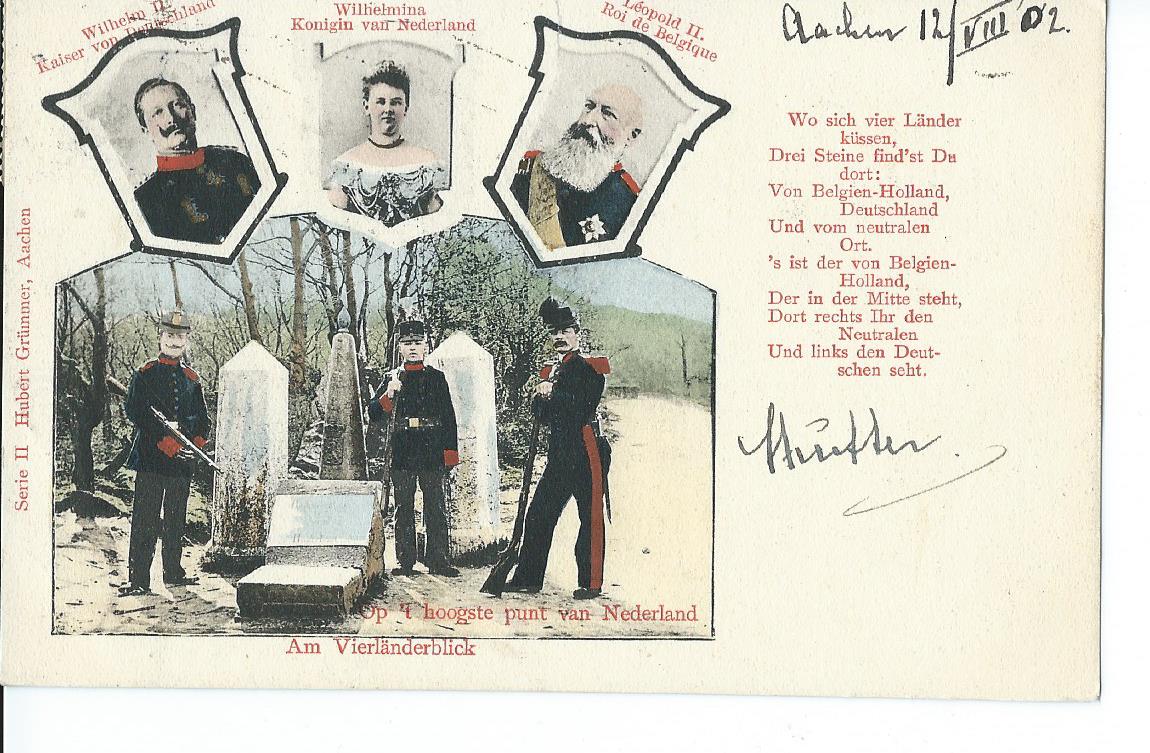 Wilhelm II.
Kaiser von Deutschland
Wilhelmina
Konigin van Nederland
Léopold II.
Roi de Belgique
Aachen 12/VIII 02.
Wo sich vier Länder
küssen,
Drei Steine find'st Du
dort:
Von Belgien-Holland,
Deutschland
Und vom neutralen
Ort.
's ist der von Belgien-
Holland,
Der in der Mitte steht,
Dort rechts Ihr den
Neutralen
Und links den Deut-
schen seht.
Serie II Hubert Grümmer, Aachen
Op 't hoogste punt van Nederland
Am Vierländerblick